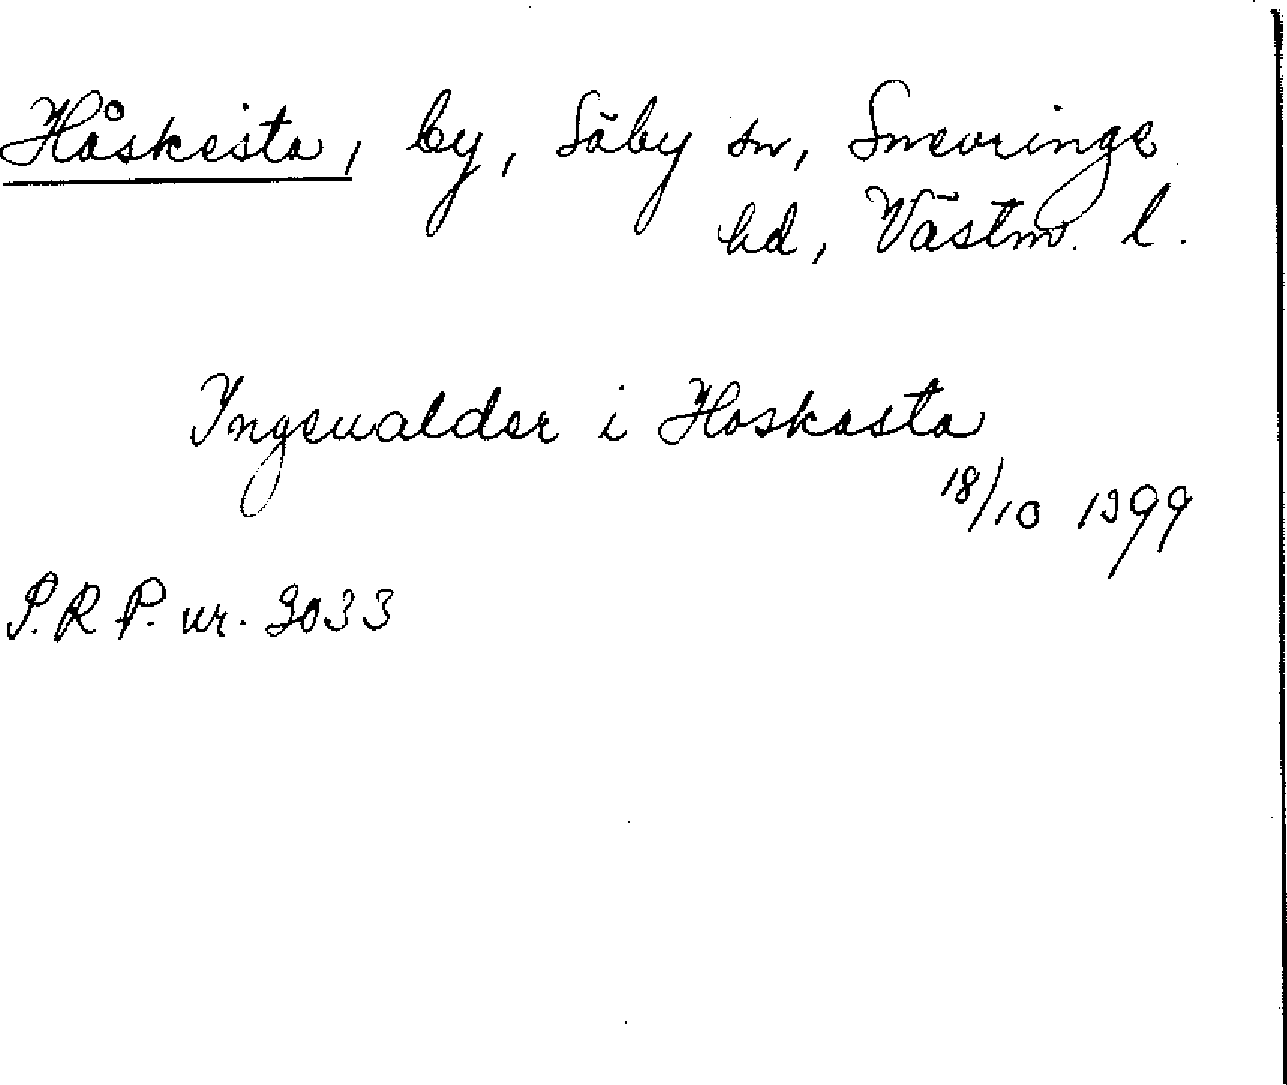 Håskesta, by, Säby sn, Snevringe
hd, Västm. l.
Ingeualder i Hoskasta
18/10 1399
P.R.P. nr. 3033